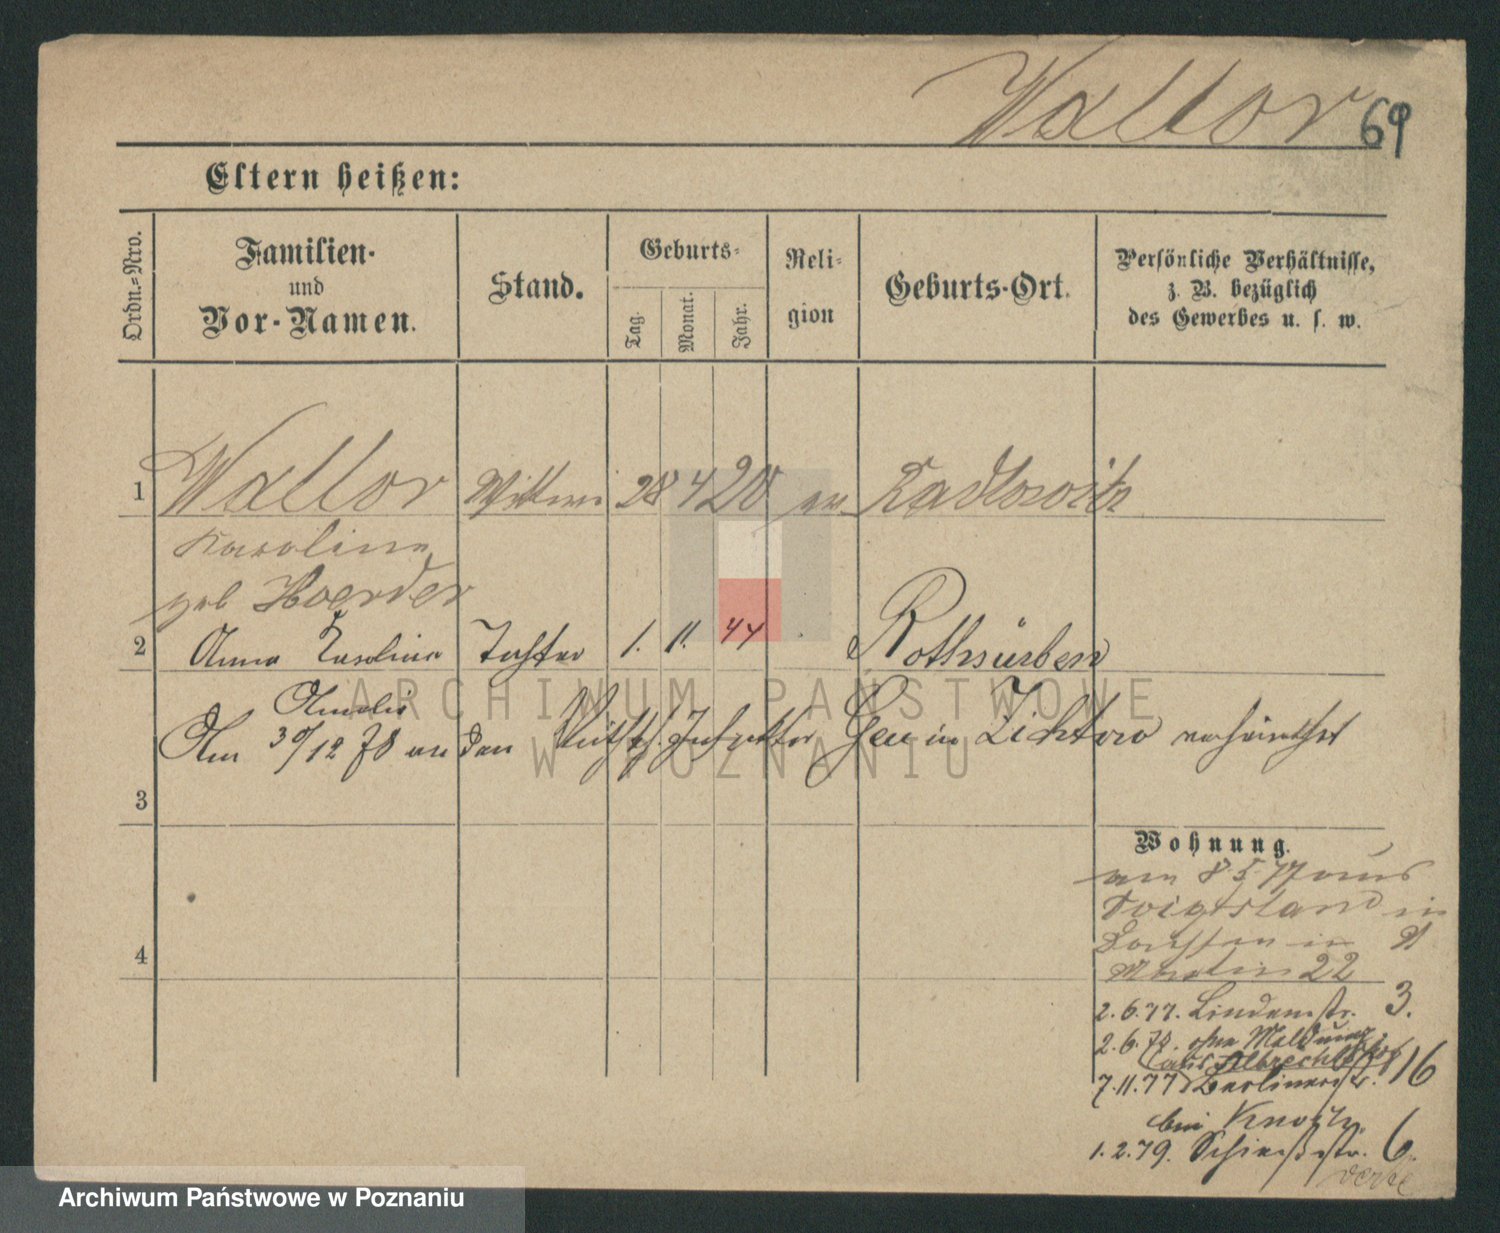 Wallor 69
Eltern heißen:
Ordn.-Nro.
Familien-
und
Vor-Namen.
Stand.
Geburts-
Tag.
Monat.
Jahr.
Reli-
gion
Geburts-Ort.
Persönliche Verhältnisse,
z. B. bezüglich
des Gewerbes u. s. w.
1 Wallor Wittwe 28 4 20 ev Radlowitz
Karoline
geb Hoerder
2 Anna Karoline Tochter 1. 11. 44 Rothsürben
Amalie
Am 30/12 78 an den Inspektor in verheirathet
3
Wohnung.
am 8 5 77 aus
Voigtsland in
in
Martin 22
4
2.6.77. Lindenstr. 3.
2.6.78. ohne Meldung
aus Albrechtshof
7.11.77 Berlinerstr. 16
bei
1.2.79. Schießstr. 6.
ARCHIWUM PAŃSTWOWE
W POZNANIU
Archiwum Państwowe w Poznaniu